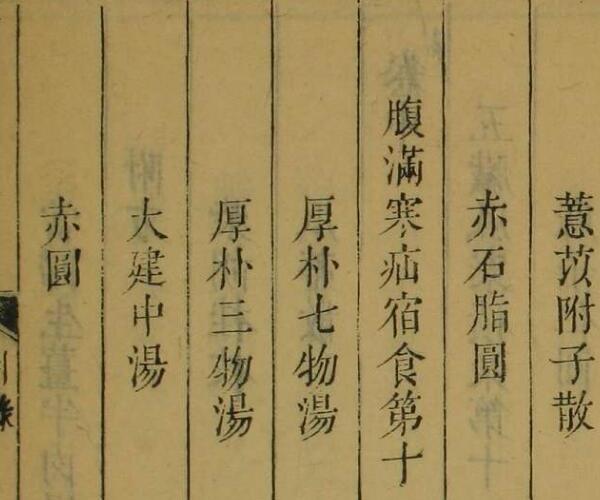 薏苡附子散
赤石脂圓
腹滿寒疝宿食第十
厚朴七物湯
厚朴三物湯
大建中湯
赤圓